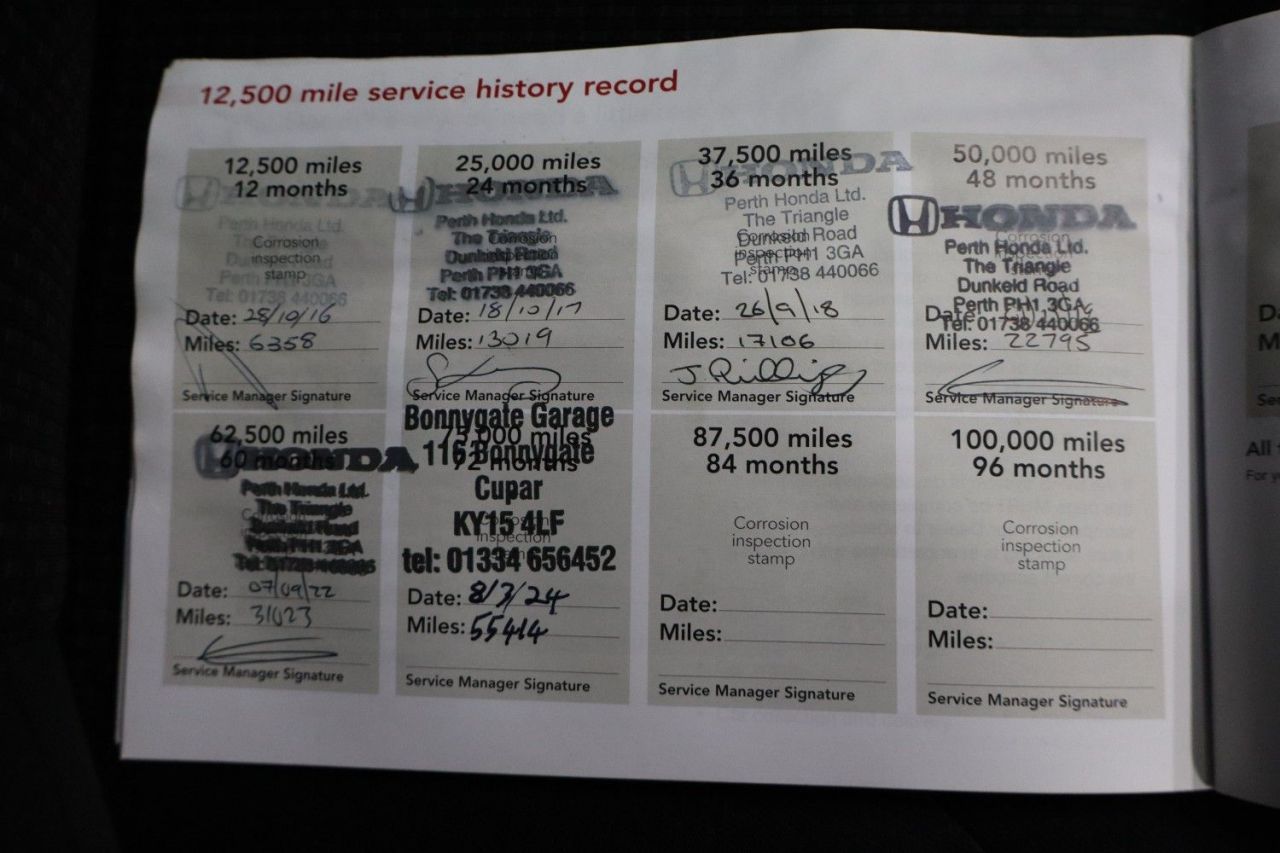 12,500 mile service history record
12,500 miles
12 months
HONDA
Perth Honda Ltd.
The Triangle
Corrosion
Dunkeld Road
inspection
Perth PH1 3GA
stamp
Tel: 01738 440066
Date: 28/10/16
Miles: 6358
Service Manager Signature
25,000 miles
24 months
HONDA
Perth Honda Ltd.
The Triangle
Corrosion
Dunkeld Road
Perth PH1 3GA
Tel: 01738 440066
Date: 18/10/17
Miles: 13019
Service Manager Signature
37,500 miles
HONDA
36 months
Perth Honda Ltd.
The Triangle
Corrosion
Dunkeld Road
inspection
Perth PH1 3GA
stamp
Tel: 01738 440066
Date: 26/9/18
Miles: 17106
J. Phillips
Service Manager Signature
50,000 miles
48 months
HONDA
Corrosion
Perth Honda Ltd.
The Triangle
Dunkeld Road
Perth PH1 3GA
Date:
Tel: 01738 440066
Miles: 22795
Service Manager Signature
62,500 miles
60 months
HONDA
Perth Honda Ltd.
The Triangle
Dunkeld Road
Perth PH1 3GA
Tel: 01738 440066
Date: 07/09/22
Miles: 31023
Service Manager Signature
Bonnygate Garage
75,000 miles
116 Bonnygate
72 months
Cupar
KY15 4LF
inspection
tel: 01334 656452
Date: 8/3/24
Miles: 55414
Service Manager Signature
87,500 miles
84 months
Corrosion
inspection
stamp
Date:
Miles:
Service Manager Signature
100,000 miles
96 months
Corrosion
inspection
stamp
Date:
Miles:
Service Manager Signature
All
For